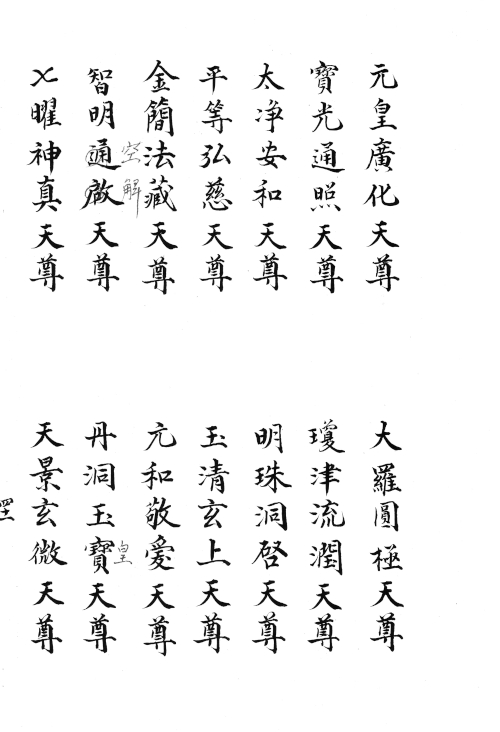 元皇廣化天尊
大羅圓極天尊
寶光通照天尊
瓊津流潤天尊
太净安和天尊
明珠洞啓天尊
平等弘慈天尊
玉清玄上天尊
金簡法藏天尊
元和敬愛天尊
空解
智明通啟天尊
皇
丹洞玉寶天尊
七曜神真天尊
天景玄微天尊